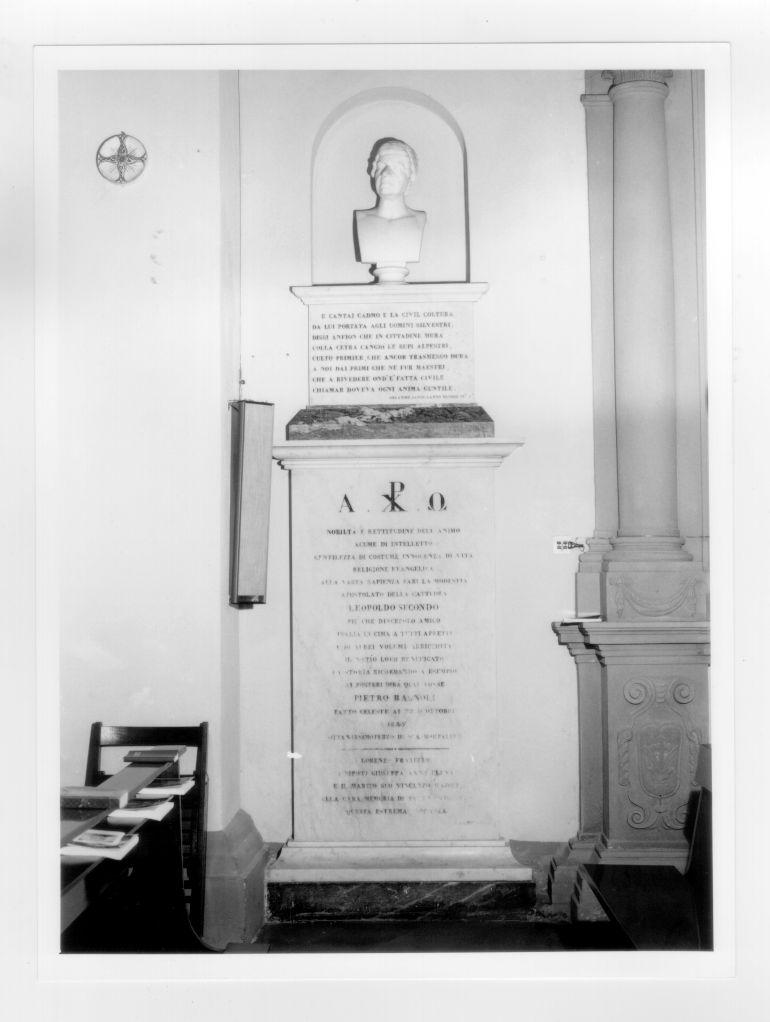 E CANTAI CADMO E LA CIVIL COLTURA
DA LUI PORTATA AGLI UOMINI SILVESTRI;
DISSI ANFION CHE IN CITTADINE MURA
COLLA CETRA CANGIÒ LE RUPI ALPESTRI,
CULTO PRIMIER, CHE ANCOR TRASMESSO DURA
A NOI DAI PRIMI CHE NE FUR MAESTRI,
CHE A RIVEDERE OND'E' FATTA CIVILE
CHIAMAR DOVEVA OGNI ANIMA GENTILE.
A . ☧ . Ω
NOBILTA E RETTITUDINE DELL'ANIMO
ACUME DI INTELLETTO
GENTILEZZA DI COSTUMI, INNOCENZA DI VITA
RELIGIONE EVANGELICA
ALLA VASTA SAPIENZA PARI LA MODESTIA
APOSTOLATO DELLA CATTEDRA
LEOPOLDO SECONDO
PIÙ CHE DISCEPOLO AMICO
ITALIA IN CIMA A TUTTI AFFETTI
VOLUMI ARRICCHITA
IL NATIO LOCO BENEFICATO
LA STORIA RICORDANDO A ESEMPIO
AI POSTERI DIRÀ QUAL FOSSE
PIETRO BAGNOLI
FATTO CELESTE AI OTTOBRE
1847
OTTANTESIMOTERZO DI SUA MORTALITÀ
LORENZO FRATELLO
NIPOTI GIUSEPPA ANNA ELENA
E IL MARITO SUO VINCENZO
ALLA CARA MEMORIA DI
QUESTA ESTREMA